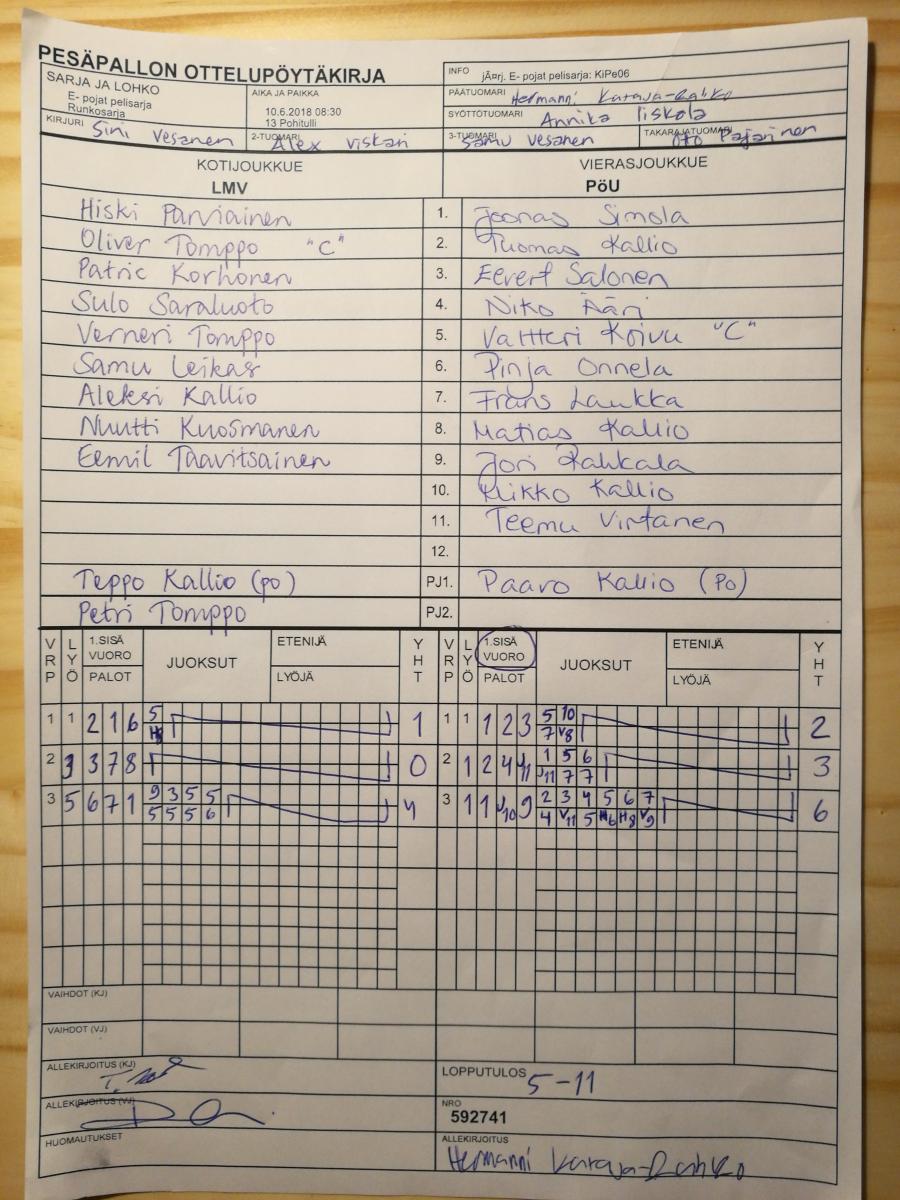 PESÄPALLON OTTELUPÖYTÄKIRJA
SARJA JA LOHKO
E- pojat pelisarja
Runkosarja
AIKA JA PAIKKA
10.6.2018 08:30
13 Pohitulli
INFO jÃ¤rj. E- pojat pelisarja: KiPe06
PÄÄTUOMARI Hermanni Karaja-Rahko
SYÖTTÖTUOMARI Annika Iiskola
KIRJURI Sini Vesanen
2-TUOMARI Alex Viskari
3-TUOMARI Samu Vesanen
TAKARAJATUOMARI Otto Pajarinen
KOTIJOUKKUE
LMV
VIERASJOUKKUE
PöU
Hiski Parviainen 1. Joonas Simola
Oliver Tomppo "C" 2. Tuomas Kallio
Patric Korhonen 3. Eevert Salonen
Sulo Saraluoto 4. Niko Ääri
Verneri Tomppo 5. Valtteri Koivu "C"
Samu Leikas 6. Pinja Onnela
Aleksi Kallio 7. Frans Laukka
Nuutti Kuosmanen 8. Matias Kallio
Eemil Taavitsainen 9. Jori Rahkala
10. Mikko Kallio
11. Teemu Virtanen
12.
Teppo Kallio (po) PJ1. Paavo Kallio (po)
Petri Tomppo PJ2.
VRP LYÖ 1.SISÄ VUORO PALOT JUOKSUT ETENIJÄ LYÖJÄ YHT VRP LYÖ 1.SISÄ VUORO PALOT JUOKSUT ETENIJÄ LYÖJÄ YHT
1 1 2 1 6 5 1 1 1 1 2 3 5 10 2
H8 7 V8
2 3 3 7 8 0 2 1 2 4 J11 1 5 6 3
J11 7 7
3 5 6 7 1 9 3 5 5 4 3 1 1 J10 9 2 3 4 5 6 7 6
5 5 5 6 4 V11 5 H6 H8 V9
VAIHDOT (KJ)
VAIHDOT (VJ)
ALLEKIRJOITUS (KJ)
LOPPUTULOS 5-11
ALLEKIRJOITUS (VJ)
NRO
592741
HUOMAUTUKSET
ALLEKIRJOITUS
Hermanni Karaja-Rahko